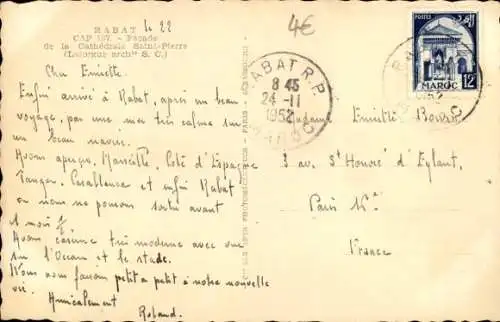 RABAT le 22
CAP 187 - Façade
de la Cathédrale Saint-Pierre
(Laforgue archte S. C.)
4€
Chère Emiette.
Enfin arrivé à Rabat, après un beau
voyage, par une mer très calme sur
un beau navire.
Avons aperçu, Marseille, Côte d'Espagne
Tanger, Casablanca et enfin Rabat
où nous ne pouvons sortir avant
1 mois ½
Avons caserne très moderne avec vue
sur l'Océan et le stade.
Nous nous faisons petit à petit à notre nouvelle
vie.
Amicalement
Roland.
RABAT R.P.
8 45
24-11
1952
MAROC
POSTES
MAROC 12F
Madame Emiette
3 av. St Honoré d'Eylaut,
Paris 16e
France